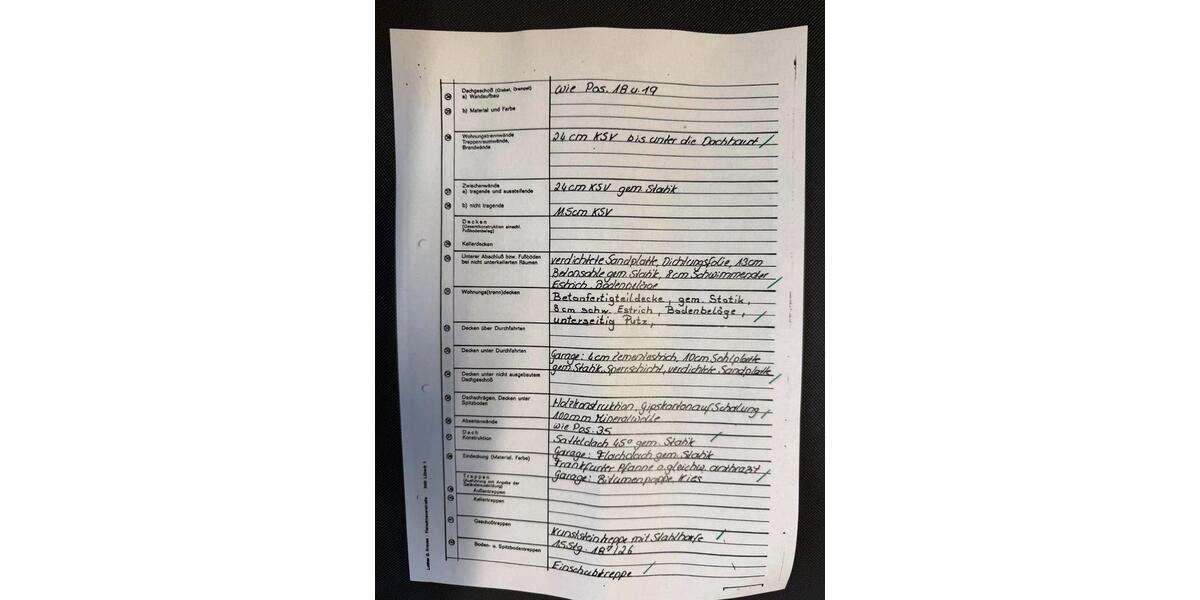 Dachgeschoß (Giebel, Drempel)
a) Wandaufbau
wie Pos. 18 u. 19
b) Material und Farbe
Wohnungstrennwände
Treppenraumwände,
Brandwände
24 cm KSV bis unter die Dachhaut
Zwischenwände
a) tragende und aussteifende
24 cm KSV gem. Statik
b) nicht tragende
11.5cm KSV
Decken
(Gesamtkonstruktion einschl.
Fußbodenbelag)
Kellerdecken
Unterer Abschluß bzw. Fußböden
bei nicht unterkellerten Räumen
verdichtete Sandplatte, Dichtungsfolie, 13cm
Betonsohle gem. Statik, 8cm Schwimmender
Estrich, Bodenbeläge
Wohnungs(trenn)decken
Betonfertigteildecke, gem. Statik,
8cm schw. Estrich, Bodenbeläge,
unterseitig Putz,
Decken über Durchfahrten
Decken unter Durchfahrten
Garage: 4cm Zementestrich, 10cm Sohlplatte
gem. Statik, Sperrschicht, verdichtete Sandplatte
Decken unter nicht ausgebautem
Dachgeschoß
Dachschrägen, Decken unter
Spitzboden
Holzkonstruktion, Gipskarton auf Schalung
100mm Mineralwolle
Abseitenwände
wie Pos. 35
Dach
Konstruktion
Satteldach 45° gem. Statik
Garage: Flachdach gem. Statik
Eindeckung (Material, Farbe)
Frankfurter Pfanne o. gleichw. anthrazit
Garage: Bitumenpappe, Kies
Treppen
(Ausführung mit Angabe der
Geländerausbildung)
Außentreppen
Kellertreppen
Geschoßtreppen
Kunststeintreppe mit Stahlharfe
15 Stg. 18⁷/26
Boden- u. Spitzbodentreppen
Einschubtreppe